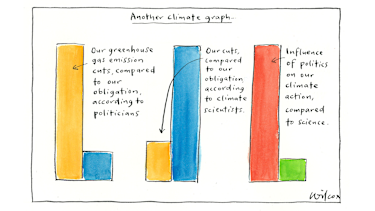 Another climate graph..
Our greenhouse
gas emission
cuts, compared
to our
obligation,
according to
politicians
Our cuts,
compared
to our
obligation
according
to climate
scientists.
Influence
of politics
on our
climate
action,
compared
to science.
Wilcox